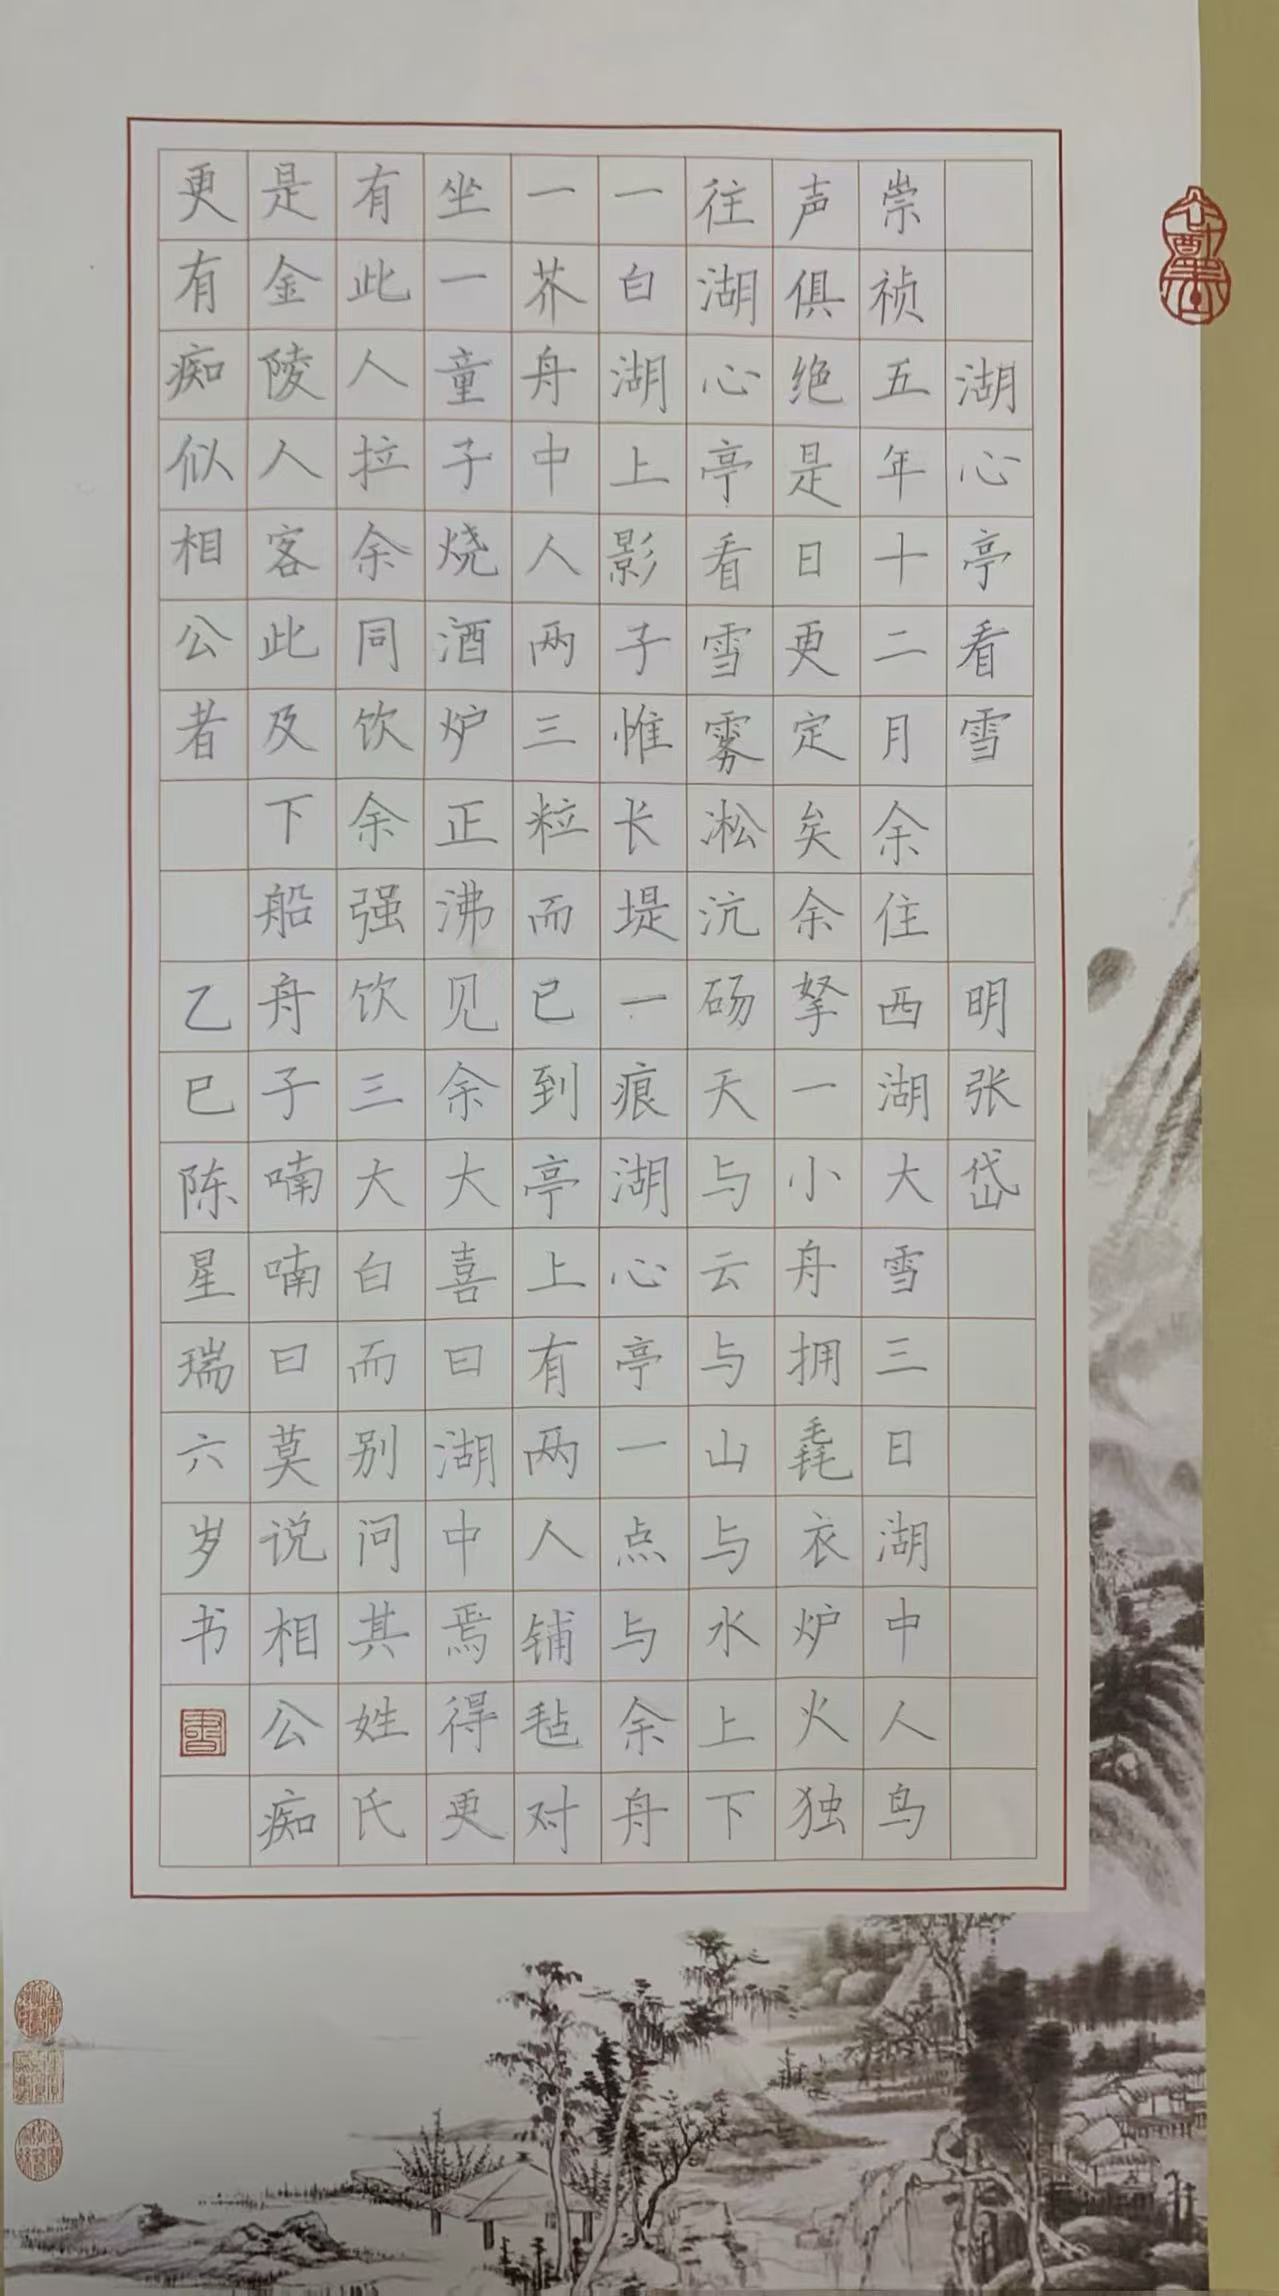 湖心亭看雪 明张岱
崇祯五年十二月余住西湖大雪三日湖中人鸟
声俱绝是日更定矣余拏一小舟拥毳衣炉火独
往湖心亭看雪雾凇沆砀天与云与山与水上下
一白湖上影子惟长堤一痕湖心亭一点与余舟
一芥舟中人两三粒而已到亭上有两人铺毡对
坐一童子烧酒炉正沸见余大喜曰湖中焉得更
有此人拉余同饮余强饮三大白而别问其姓氏
是金陵人客此及下船舟子喃喃曰莫说相公痴
更有痴似相公者 乙巳陈星瑞六岁书